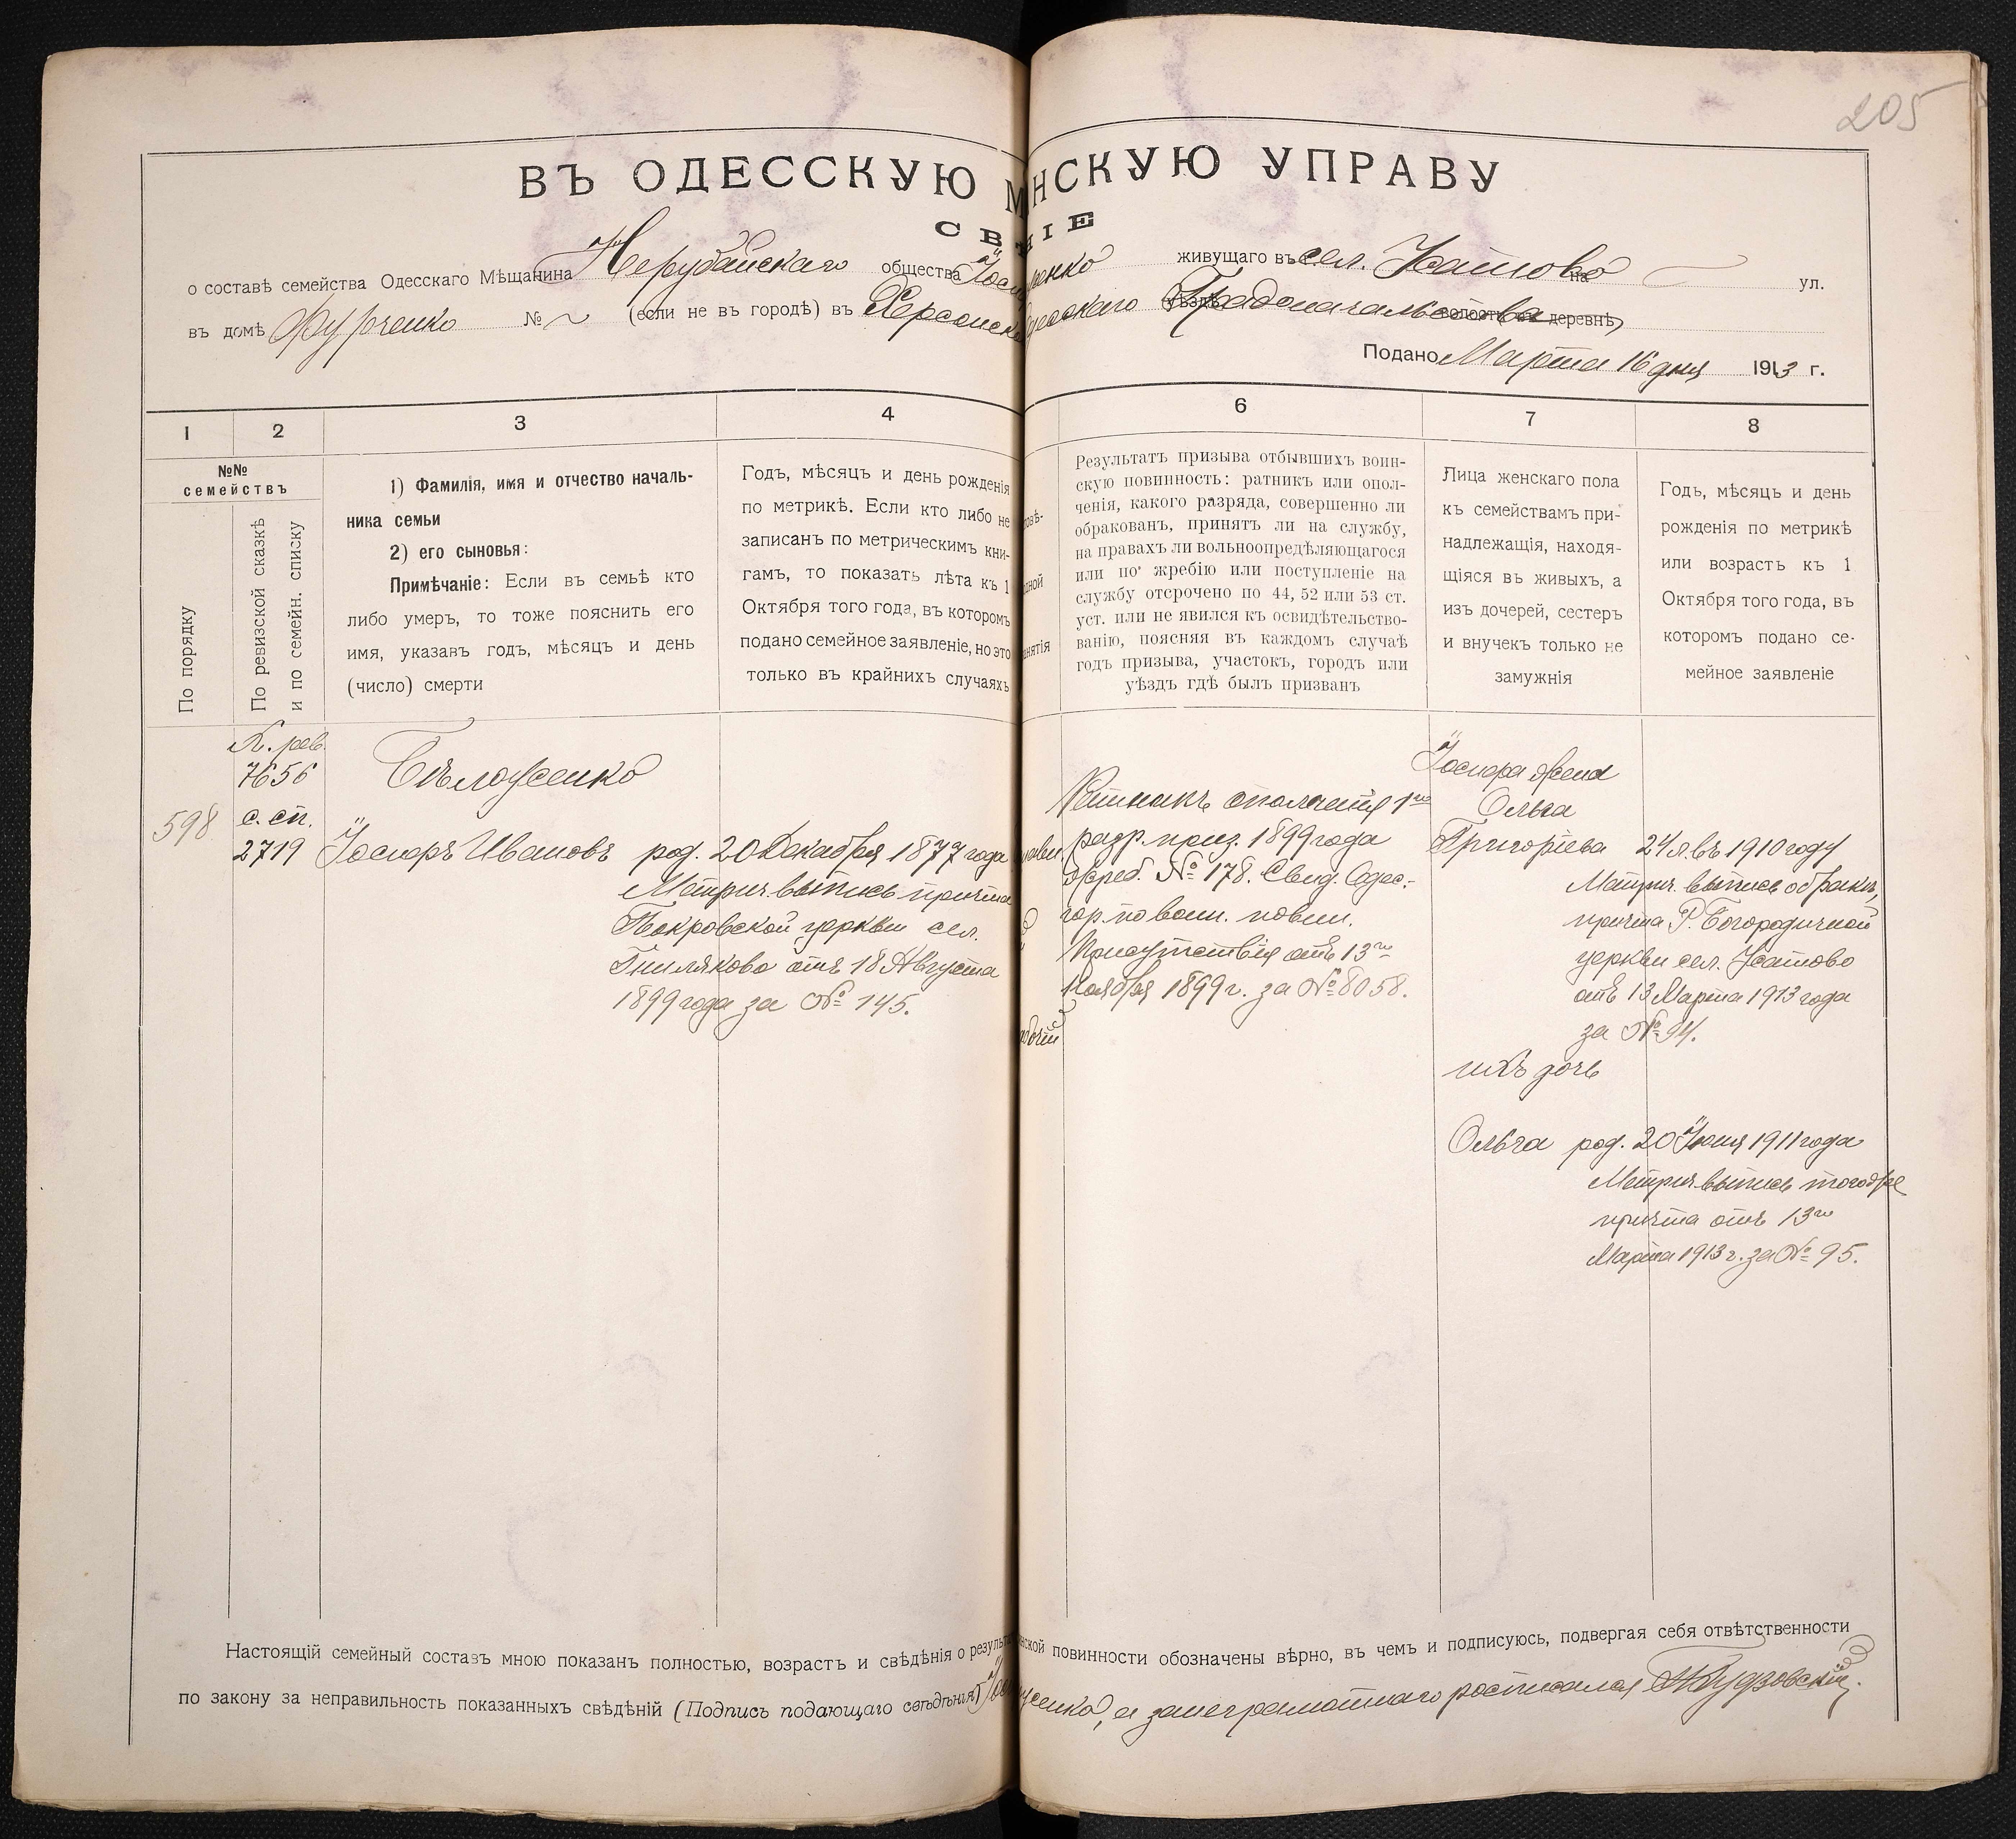 205
ВЪ ОДЕССКУЮ М НСКУЮ УПРАВУ
СВ НІЕ
о составѣ семейства Одесскаго Мѣщанина Нерубайскаго общества Іоси енко живущаго въ сел. Усатово на ул.
въ домѣ № (если не въ городѣ) въ Херсонск Одесскаго уѣздѣ Градоначальства волость деревнѣ,
Подано Марта 16 дня 1913 г.
1 2 3 4 6 7 8
№№ семействъ
По порядку
По ревизской сказкѣ
и по семейн. списку
1) Фамилія, имя и отчество началь-
ника семьи
2) его сыновья:
Примѣчаніе: Если въ семьѣ кто
либо умеръ, то тоже пояснить его
имя, указавъ годъ, мѣсяцъ и день
(число) смерти
Годъ, мѣсяцъ и день рожденія
по метрикѣ. Если кто либо не
записанъ по метрическимъ кни-
гамъ, то показать лѣта къ 1
Октября того года, въ которомъ
подано семейное заявленіе, но это
только въ крайнихъ случаяхъ
Результатъ призыва отбывшихъ воин-
скую повинность: ратникъ или опол-
ченія, какого разряда, совершенно ли
обракованъ, принятъ ли на службу,
на правахъ ли вольноопредѣляющагося
или по жребію или поступленіе на
службу отсрочено по 44, 52 или 53 ст.
уст. или не явился къ освидѣтельство-
ванію, поясняя въ каждомъ случаѣ
годъ призыва, участокъ, городъ или
уѣздъ гдѣ былъ призванъ
Лица женскаго пола
къ семействамъ при-
надлежащія, находя-
щіяся въ живыхъ, а
изъ дочерей, сестеръ
и внучекъ только не
замужнія
Годъ, мѣсяцъ и день
рожденія по метрикѣ
или возрастъ къ 1
Октября того года, въ
которомъ подано се-
мейное заявленіе
598
К. рев.
7656
с. сп.
2719
Бѣлоусенко
Іосифъ Ивановъ
род. 20 Декабря 1877 года
Метрич. выпись причта
Покровской церкви сел.
Гниляково отъ 18 Августа
1899 года за № 145.
Ратникъ ополченія 1го
разр. приз. 1899 года
жреб. № 178. Свид. Одес.
гор. по воин. повин.
Присутствія отъ 13го
Ноября 1899 г. за № 8058.
Іосифа жена
Ольга
Григорьева
24 л. въ 1910 году
Метрич. выпись о бракѣ,
причта Р. Богородичной
церкви сел. Усатово
отъ 13 Марта 1913 года
за № 94.
ихъ дочь
Ольга род. 20 Іюня 1911 года
Метрич. выпись того же
причта отъ 13го
Марта 1913 г. за № 95.
Настоящій семейный составъ мною показанъ полностью, возрастъ и свѣдѣнія о резуль нской повинности обозначены вѣрно, въ чемъ и подписуюсь, подвергая себя отвѣтственности
по закону за неправильность показанныхъ свѣдѣній (Подпись подающаго свѣдѣнія) Іос усенко, а за неграмотнаго росписался